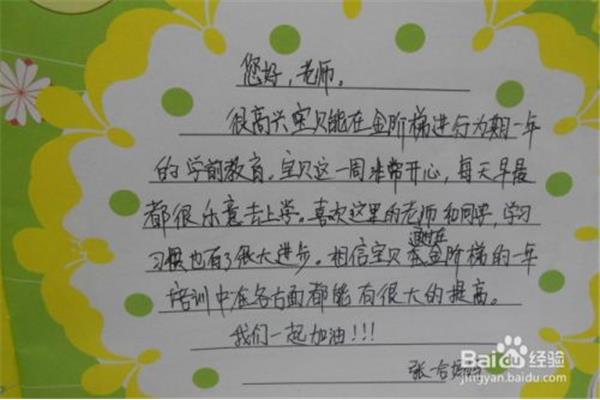 您好，老师。
很高兴宝贝能在金阶梯进行为期一年
的学前教育。宝贝这一周非常开心，每天早晨
都很乐意去上学。喜欢这里的老师和同学，学习
习惯也有了很大进步。相信宝贝通过在金阶梯的一年
培训中在各方面都能有很大的提高。
我们一起加油!!!
张一合妈妈
Baidu 经验
jingyan.baidu.com